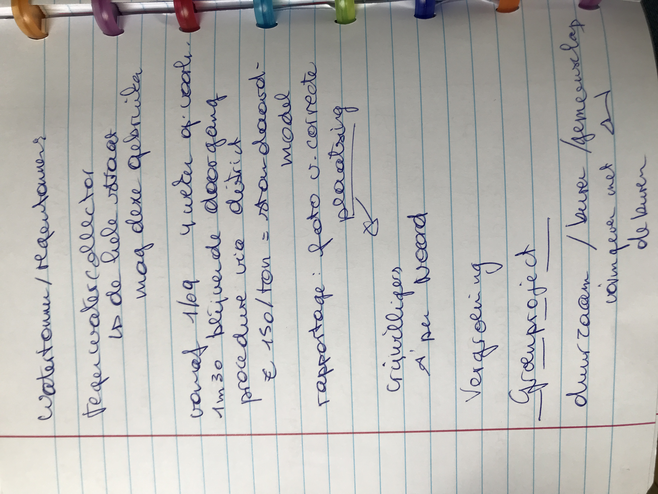 Watertonnen/regentonnen
regenwatercollector
↳ de hele straat
mag deze gebruiken
vanaf 1/09 4 weken
1m30 blijvende doorgang
procedure via district
€ 150/ton = standaard-
model
rapportage: foto v. correcte
plaatsing
vrijwilligers
A'pen Noord
Vergroening
Groenproject
duurzaam / buren / gemeenschap
vormgeven met
de buren